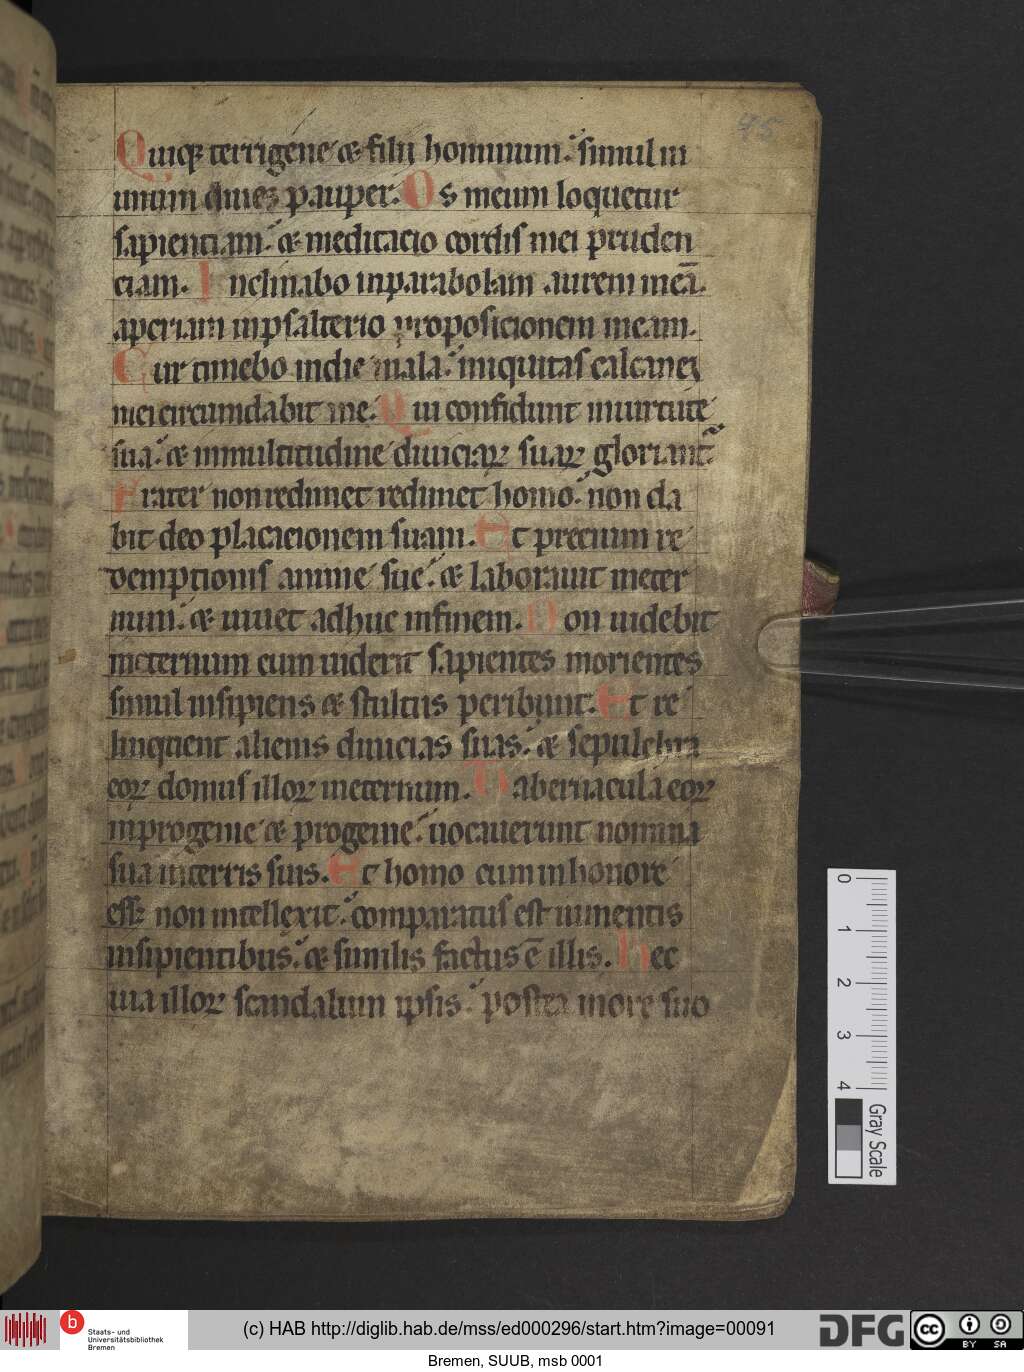 45
Quiq; terrigene & filii hominum. simul in
unum diues & pauper. Os meum loquetur
sapienciam. & meditacio cordis mei pruden
ciam. Inclinabo in parabolam aurem meā.
aperiam in psalterio proposicionem meam.
Cur timebo in die mala. iniquitas calcanei
mei circumdabit me. Qui confidunt in uirtute
sua. & in multitudine diuiciaꝝ suaꝝ gloriant̄
Frater non redimet redimet homo. non da
bit deo placacionem suam. Et precium re
demptionis anime sue. & laborauit in eter
num. & uiuet adhuc in finem. Non uidebit
interitum cum uiderit sapientes morientes
simul insipiens & stultus peribunt. Et re
linquent alienis diuicias suas. & sepulchra
eoꝝ domus illoꝝ in eternum. Tabernacula eoꝝ
in progenie & progenie. uocauerunt nomina
sua in terris suis. Et homo cum in honore
esse non intellexit. comparatus est iumentis
insipientibus. & similis factus ē illis. Hec
uia illoꝝ scandalum ipsis. postea in ore suo
0 1 2 3 4
Gray Scale
b Staats- und
Universitätsbibliothek
Bremen
(c) HAB http://diglib.hab.de/mss/ed000296/start.htm?image=00091
DFG
cc BY SA
Bremen, SUUB, msb 0001